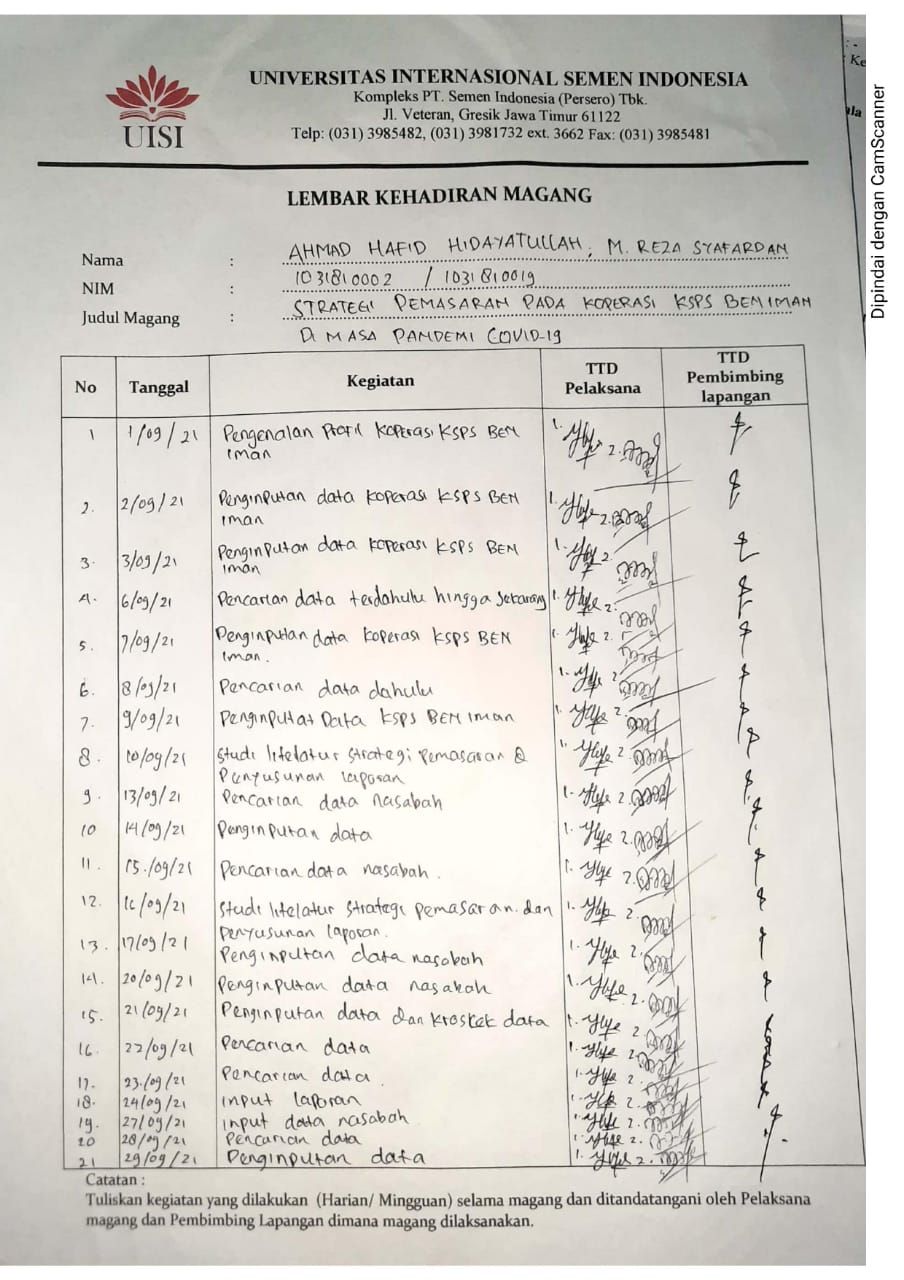 UNIVERSITAS INTERNASIONAL SEMEN INDONESIA
Kompleks PT. Semen Indonesia (Persero) Tbk.
Jl. Veteran, Gresik Jawa Timur 61122
Telp: (031) 3985482, (031) 3981732 ext. 3662 Fax: (031) 3985481
UISI
LEMBAR KEHADIRAN MAGANG
Nama : AHMAD HAFID HIDAYATULLAH, M. REZA SYAFARDAN
NIM : 1031810002 / 1031810019
Judul Magang : STRATEGI PEMASARAN PADA KOPERASI KSPS BEM IMAN
DI MASA PANDEMI COVID-19
No Tanggal Kegiatan TTD Pelaksana TTD Pembimbing lapangan
1 1/09/21 Pengenalan Profil Koperasi KSPS BEM
iman
2. 2/09/21 Penginputan data Koperasi KSPS BEM
iman
3. 3/09/21 Penginputan data Koperasi KSPS BEM
iman
4. 6/09/21 Pencarian data terdahulu hingga sekarang
5. 7/09/21 Penginputan data Koperasi KSPS BEM
iman.
6. 8/09/21 Pencarian data dahulu
7. 9/09/21 Penginputat Data KSPS BEM iman
8. 10/09/21 Studi litelatur Strategi Pemasaran &
Penyusunan laporan
9. 13/09/21 Pencarian data nasabah
10 14/09/21 Penginputan data
11. 15./09/21 Pencarian data nasabah.
12. 16/09/21 Studi litelatur Strategi pemasaran. dan
penyusunan laporan.
13. 17/09/21 Penginputan data nasabah
14. 20/09/21 Penginputan data nasabah
15. 21/09/21 Penginputan data dan kroscek data
16. 22/09/21 Pencarian data
17. 23/09/21 Pencarian data.
18. 24/09/21 input laporan
19. 27/09/21 input data nasabah.
20 28/09/21 Pencarian data
21 29/09/21 Penginputan data
Catatan :
Tuliskan kegiatan yang dilakukan (Harian/ Mingguan) selama magang dan ditandatangani oleh Pelaksana
magang dan Pembimbing Lapangan dimana magang dilaksanakan.
Dipindai dengan CamScanner